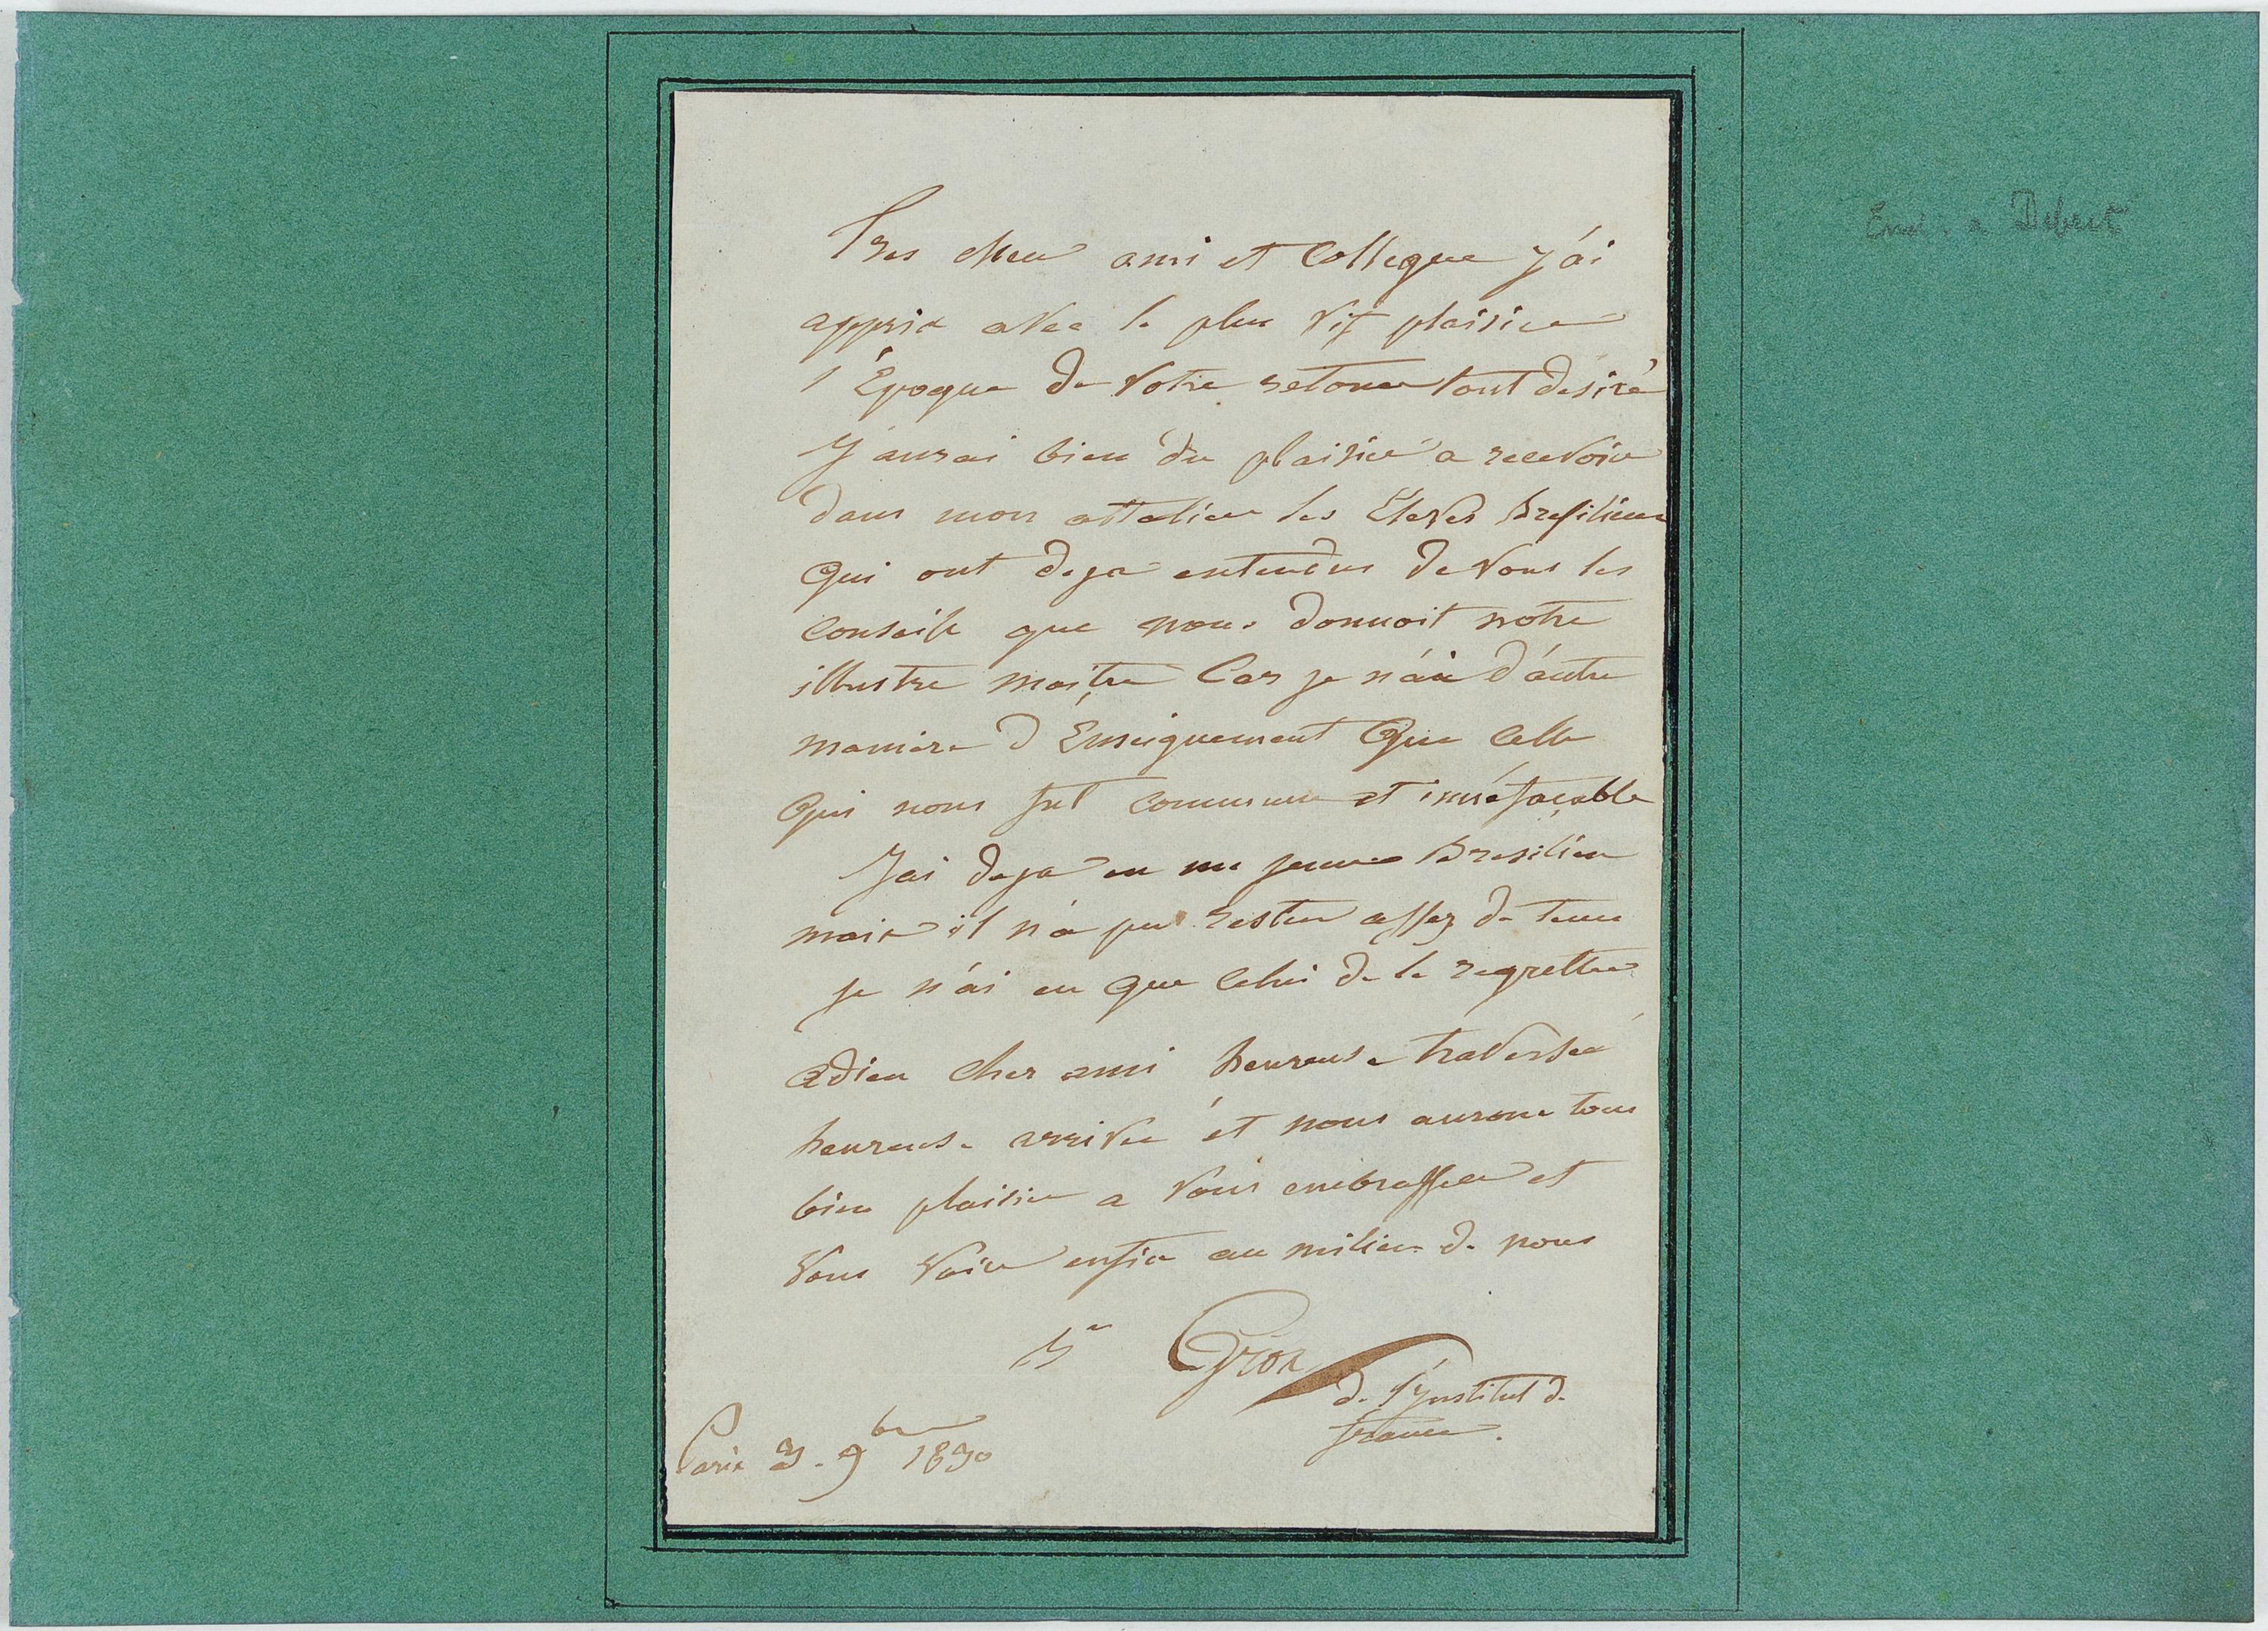 Tres cher ami et Collegue J'ai
appris avec le plus vif plaisir
l'Époque de votre retour tant desiré
J'aurai bien du plaisir a recevoir
dans mon attelier les Éleves Bresiliens
Qui ont deja entendus de vous les
Conseils que nous donnoit notre
illustre maitre Car je n'ai d'autre
maniere d'Enseignement Que Celle
Qui nous fut commune et innéfaçable
J'ai deja eu un jeune Bresilien
mais il n'a pu rester assez de tems
je n'ai eu que Celui de le regretter
adieu cher ami heureuse traversée
heureuse arrivée et nous aurons tous
bien plaisir a vous embrasser et
vous voir enfin au milieu de nous
Bn Gros
de l'Institut de
france.
Paris 3. 9bre 1830
a Debret